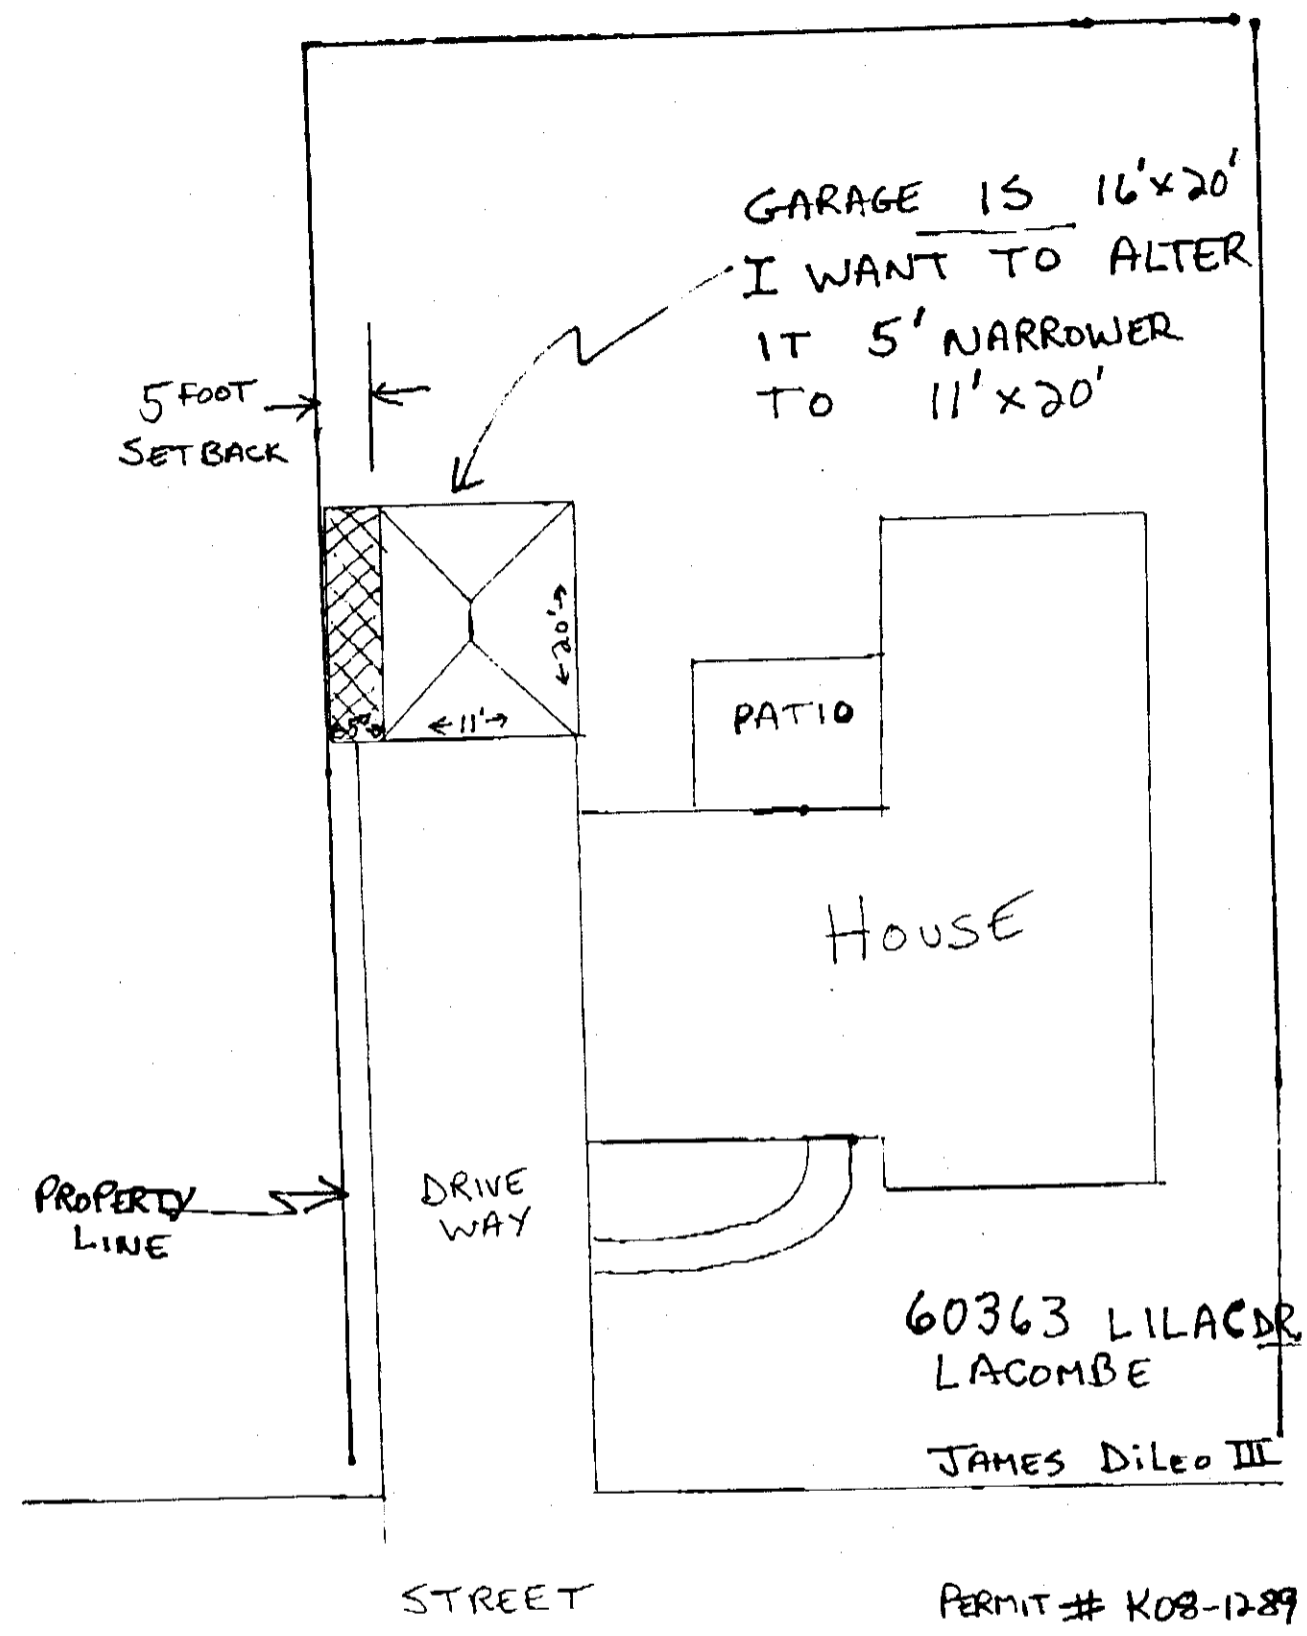 GARAGE IS 16'x20'
I WANT TO ALTER
IT 5' NARROWER
TO 11'x20'
5 FOOT
SETBACK
20'
5'
11'
PATIO
HOUSE
PROPERTY
LINE
DRIVE
WAY
60363 LILAC DR.
LACOMBE
JAMES DiLEO III
STREET
PERMIT # K08-1289